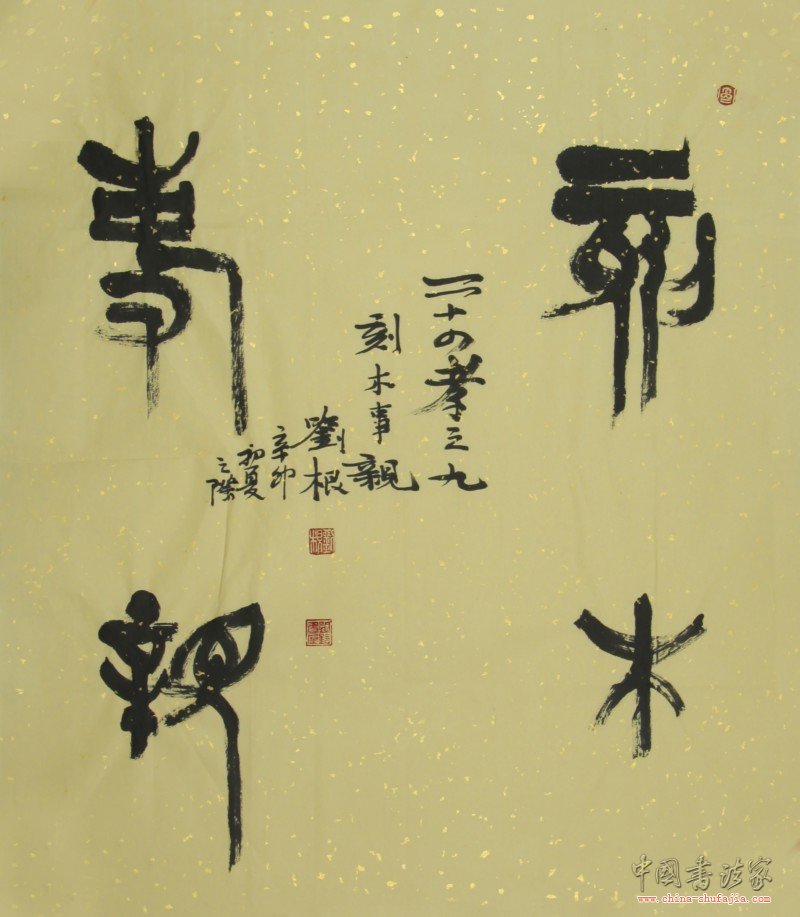 刻木
事親
二十四孝之九
刻木事親
劉根
辛卯
初夏
之際
中國書法家
www.china-shufajia.com